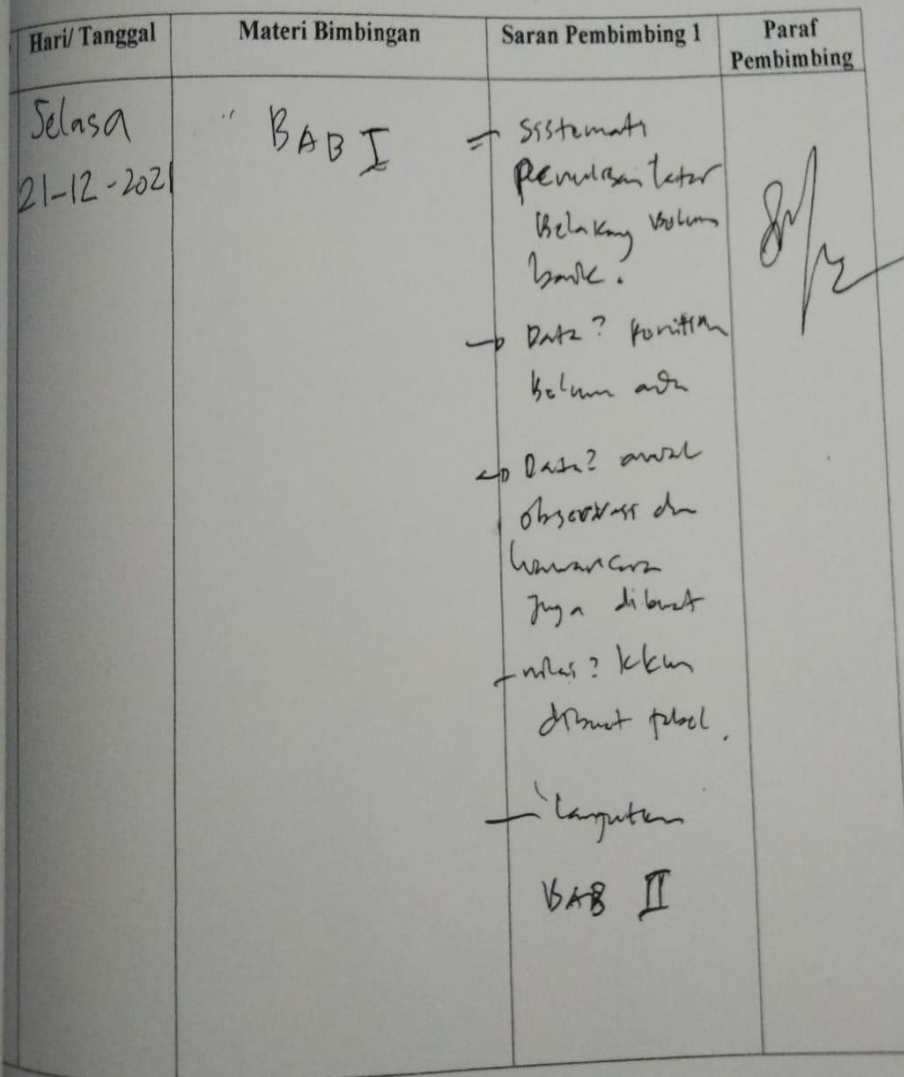 Hari/ Tanggal
Materi Bimbingan
Saran Pembimbing 1
Paraf
Pembimbing
Selasa
21-12-2021
BAB I
Sistemati
penulisan latar
Belakang belum
baik.
Data? penelitian
Belum ada
Data? awal
observasi dan
wawancara
Juga dibuat
- nilai? kkm
dibuat tabel.
- langutkan
BAB II